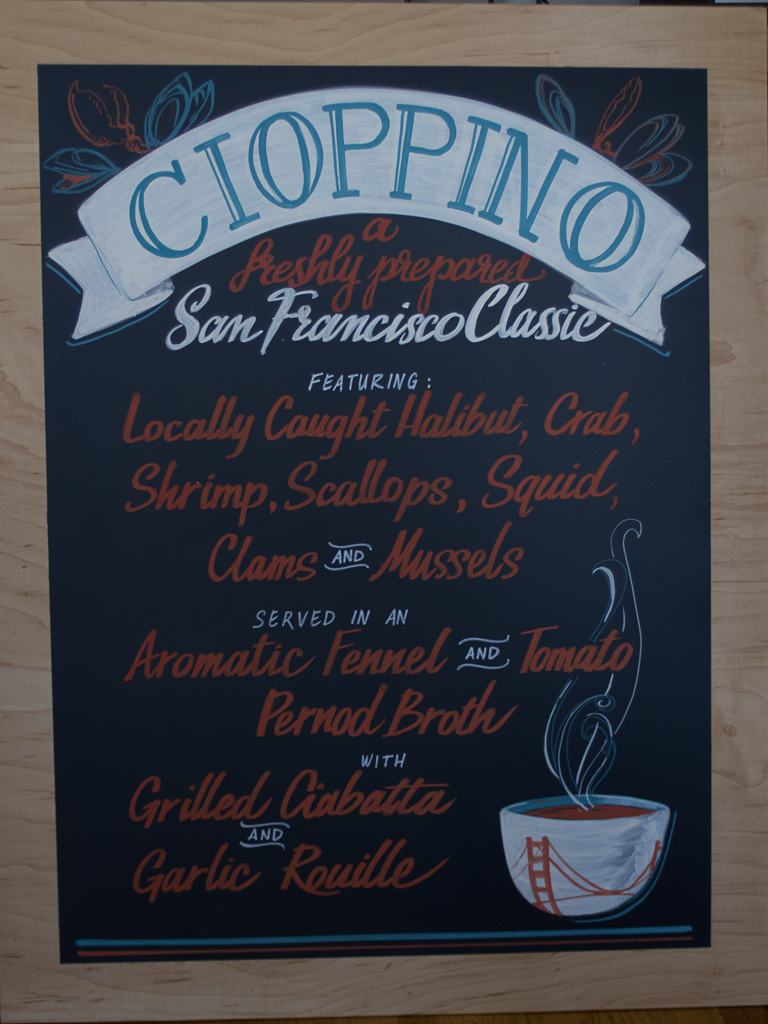 CIOPPINO
a
freshly prepared
San Francisco Classic
FEATURING:
Locally Caught Halibut, Crab,
Shrimp, Scallops, Squid,
Clams AND Mussels
SERVED IN AN
Aromatic Fennel AND Tomato
Pernod Broth
WITH
Grilled Ciabatta
AND
Garlic Rouille